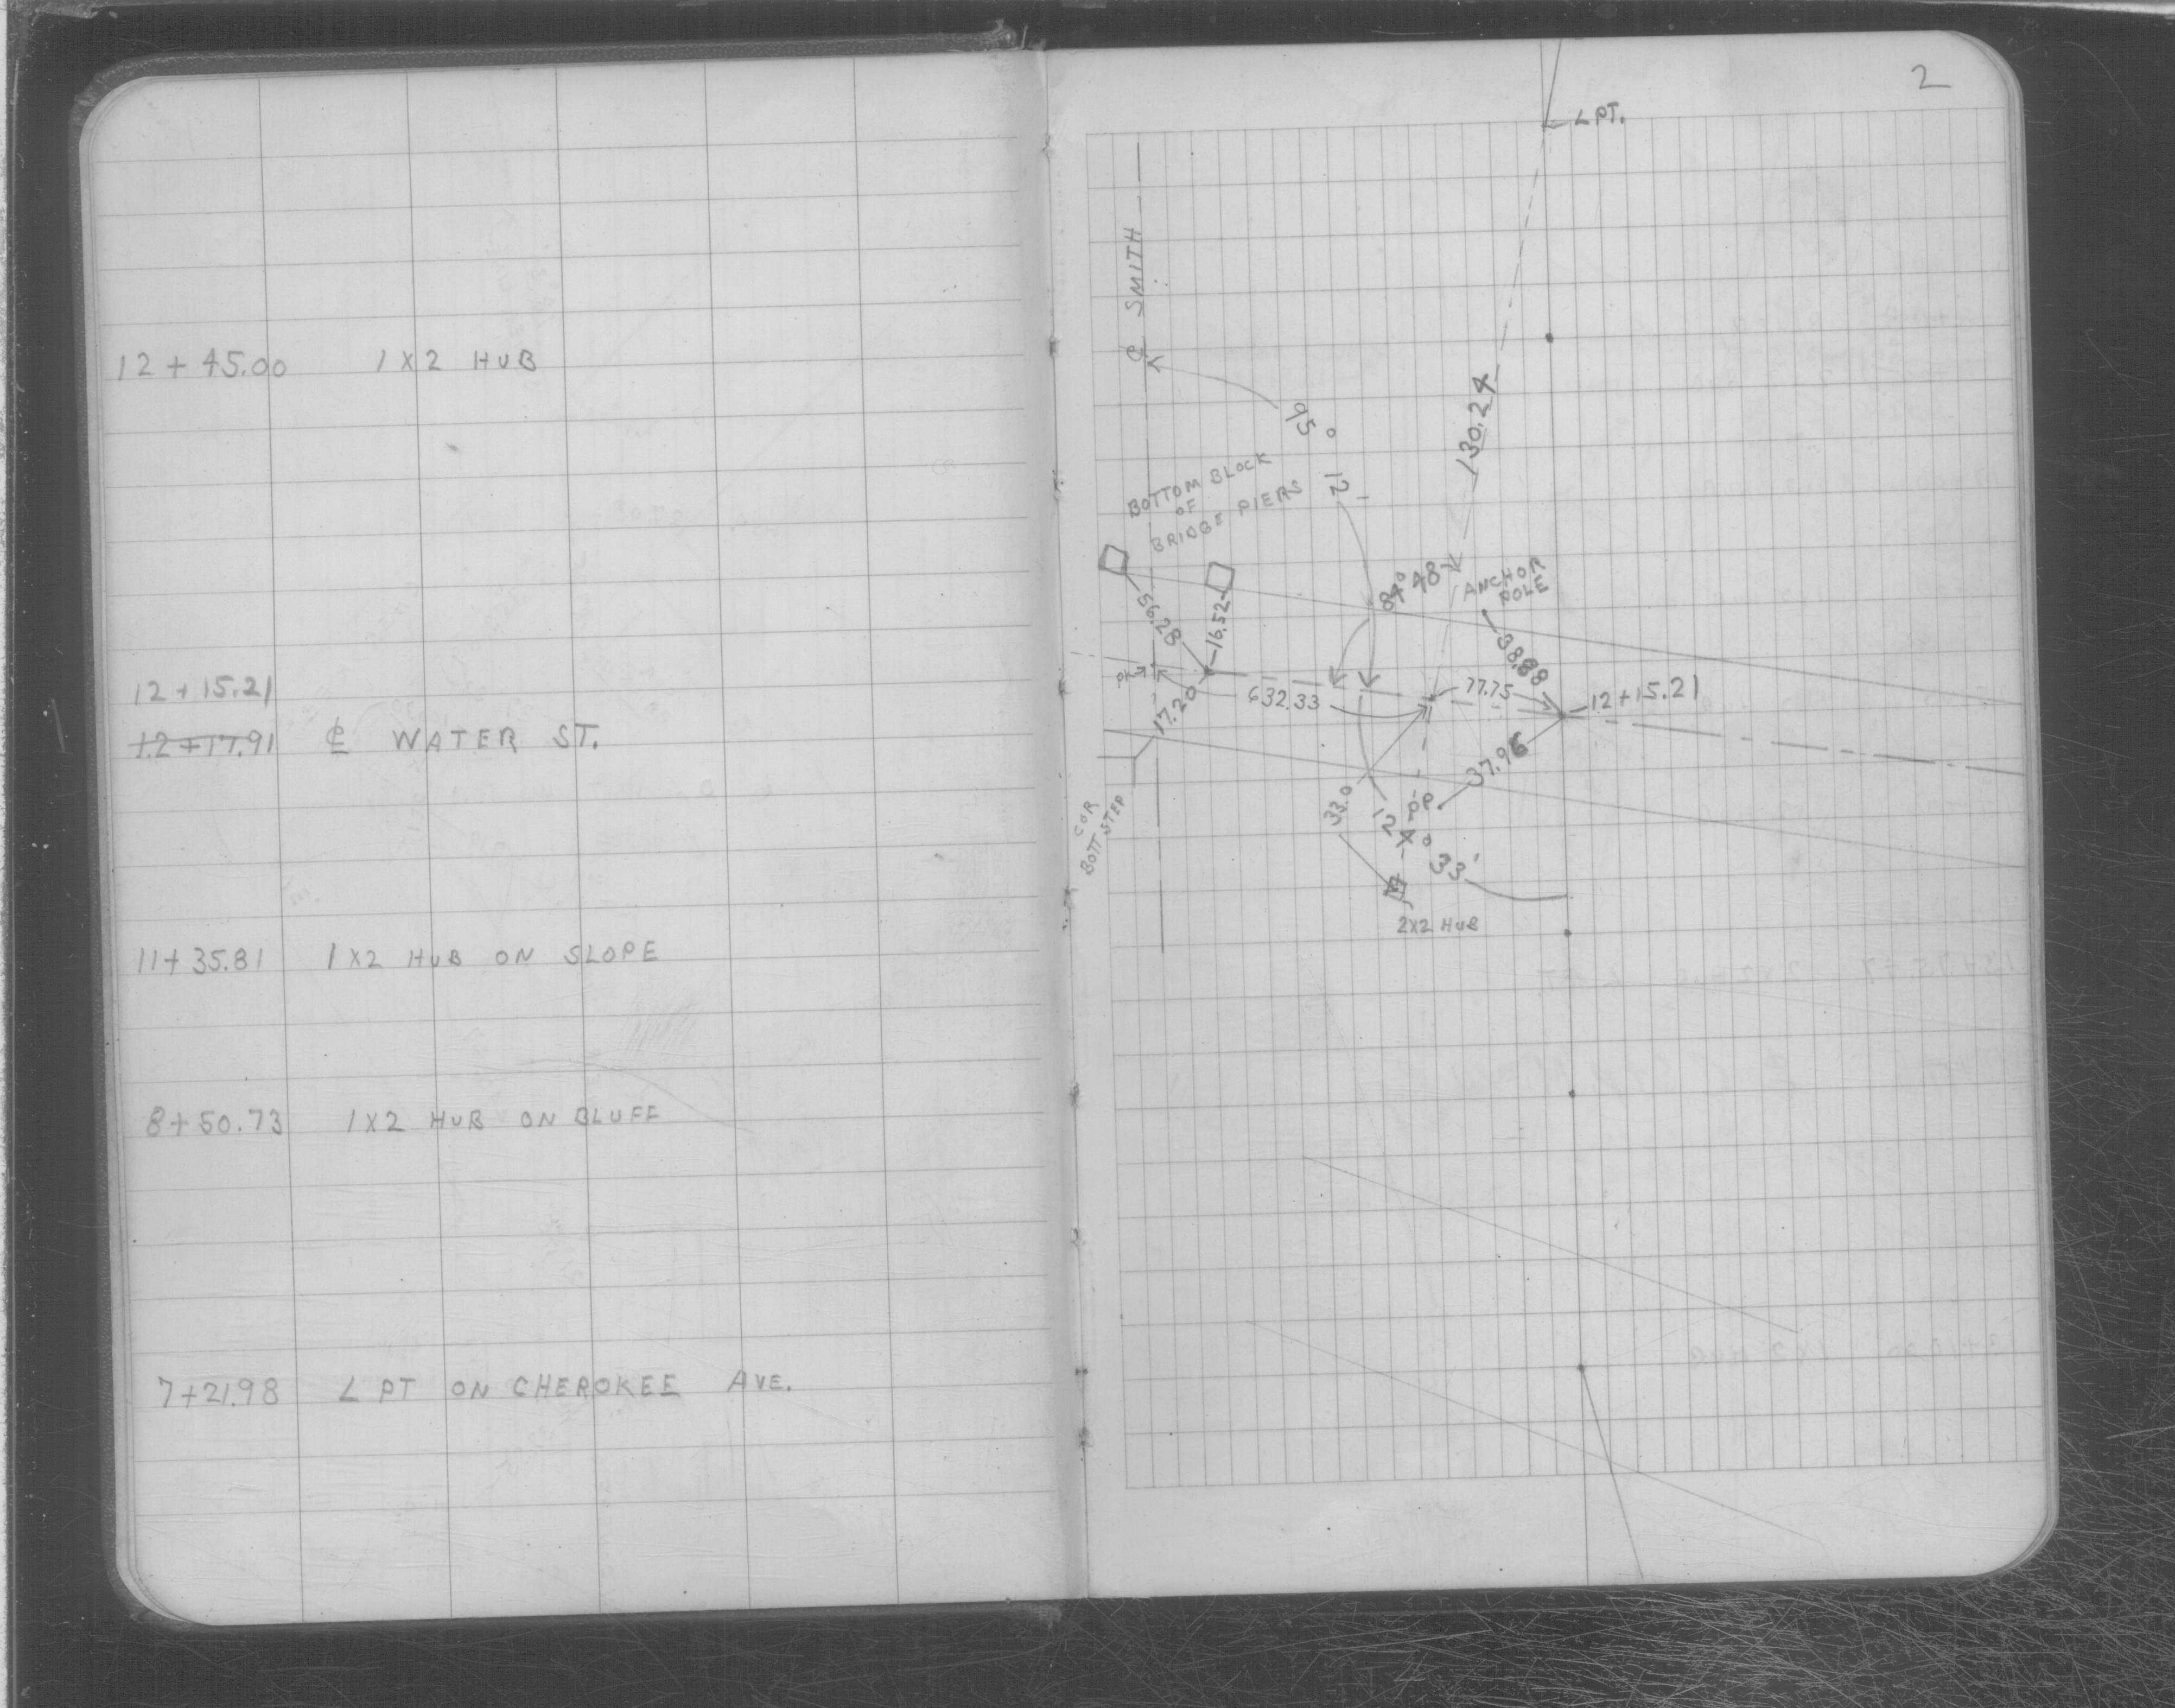 12 + 45.00 1 X 2 HUB
12 + 15.21
12 + 17.91 ℄ WATER ST.
11 + 35.81 1 X 2 HUB ON SLOPE
8 + 50.73 1 X 2 HUB ON BLUFF
7 + 21.98 ∠ PT ON CHEROKEE AVE.
2
∠ PT.
℄ SMITH
130.24
95° 12'
BOTTOM BLOCK
OF
BRIDGE PIERS
84° 48'
ANCHOR
POLE
56.28
16.52
38.88
77.75
12 + 15.21
632.33
17.20
37.96
PP
33.0
124° 33'
COR
BOTT. STEP
2X2 HUB